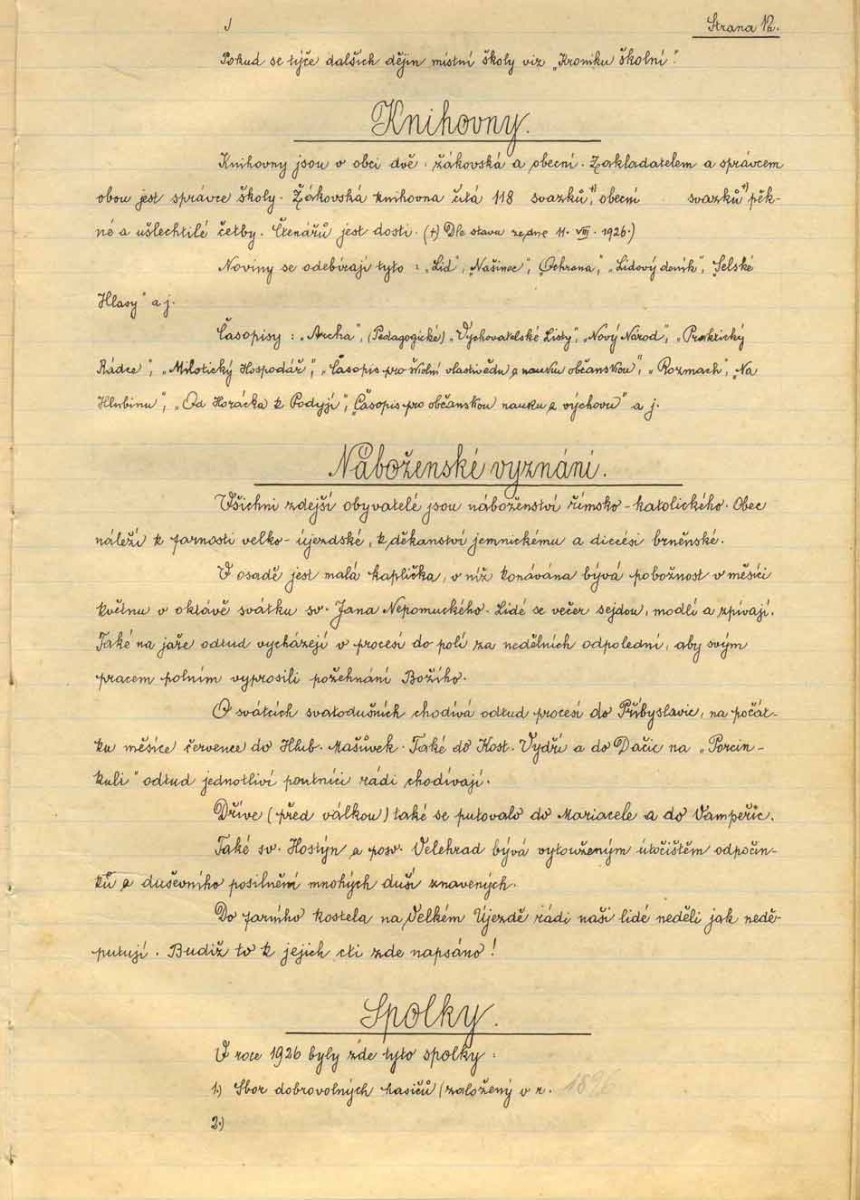 Strana 12.
Pokud se týče dalších dějin místní školy viz „Kroniku školní“.
Knihovny.
Knihovny jsou v obci dvě: žákovská a obecní. Zakladatelem a správcem
obou jest správce školy. Žákovská knihovna čítá 118 svazků,+) obecní svazků+) pěk-
né a ušlechtilé četby. Čtenářů jest dosti. (+) Dle stavu ze dne 11. VIII. 1926.)
Noviny se odebírají tyto: „Lid“, „Našinec“, „Ochrana“, „Lidový deník“, „Selské
Hlasy“ a j.
Časopisy: „Archa“, (Pedagogické) „Vychovatelské Listy“, „Nový Národ“, „Praktický
Rádce“, „Milotický Hospodář“, „Časopis pro školní vlastivědu a nauku občanskou“, „Rozmach“, „Na
Hlubinu“, „Od Horácka k Podyjí“, „Časopis pro občanskou nauku a výchovu“ a j.
Náboženské vyznání.
Všichni zdejší obyvatelé jsou náboženství římsko-katolického. Obec
náleží k farnosti velko-újezdské, k děkanství jemnickému a diecési brněnské.
V osadě jest malá kaplička, v níž konávána bývá pobožnost v měsíci
květnu v oktávě svátku sv. Jana Nepomuckého. Lidé se večer sejdou, modlí a zpívají.
Také na jaře odtud vycházejí v procesí do polí za nedělních odpolední, aby svým
pracem polním vyprosili požehnání Božího.
O svátcích svatodušních chodívá odtud procesí do Přibyslavic, na počát-
ku měsíce července do Hlub. Mašůvek. Také do Kost. Vydří a do Dačic na „Porcin-
kuli“ odtud jednotliví poutníci rádi chodívají.
Dříve (před válkou) také se putovalo do Mariacele a do Vampeřic.
Také sv. Hostýn a posv. Velehrad bývá vytouženým útočištěm odpočin-
ků a duševního posilnění mnohých duší znavených.
Do farního kostela na Velkém Újezdě rádi naši lidé neděli jak nedě-
putují. Budiž to k jejich cti zde napsáno!
Spolky.
V roce 1926 byly zde tyto spolky:
1.) Sbor dobrovolných hasičů (založený v r. 1896
2.)